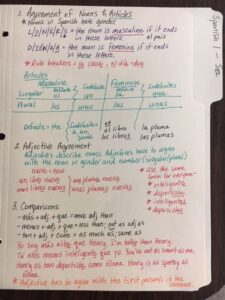 Spanish 1 - Sea
1. Agreement of Nouns & Articles
* Nouns in Spanish have gender
L/O/N/E/R/S = the noun is masculine if it ends
in these letters. el pair
D/IÓN/Z/A = the noun is femenine if it ends
in these letters
* Rule breakers = la clase, el día
Articles
Masculine Feminine
Definite Indefinite Definite Indefinite
Singular el un la una
Plural los unos las unas
Definite = the Indefinite = a, an, some
el libro la pluma
los libros las plumas
2. Adjective Agreement
Adjectives describe nouns. Adjectives have to agree
with the noun in gender and number (singular/plural)
nuevo = new
un libro nuevo una pluma nueva
unos libros nuevos unas plumas nuevas
* Use the same form for everyone:
* inteligente
* deportista
* inteligentes
* deportistas
3. Comparisons
- más + adj + que = more adj than
- menos + adj + que = less than; not as adj as
- tan + adj + como = as much as; same as
Yo soy más alta que Henry. I'm taller than Henry.
Tú eres menos inteligente que yo. You're not as smart as me.
Henry es tan deportista como Elena. Henry is as sporty as
Elena.
* Adjective has to agree with the first person in the
sentence